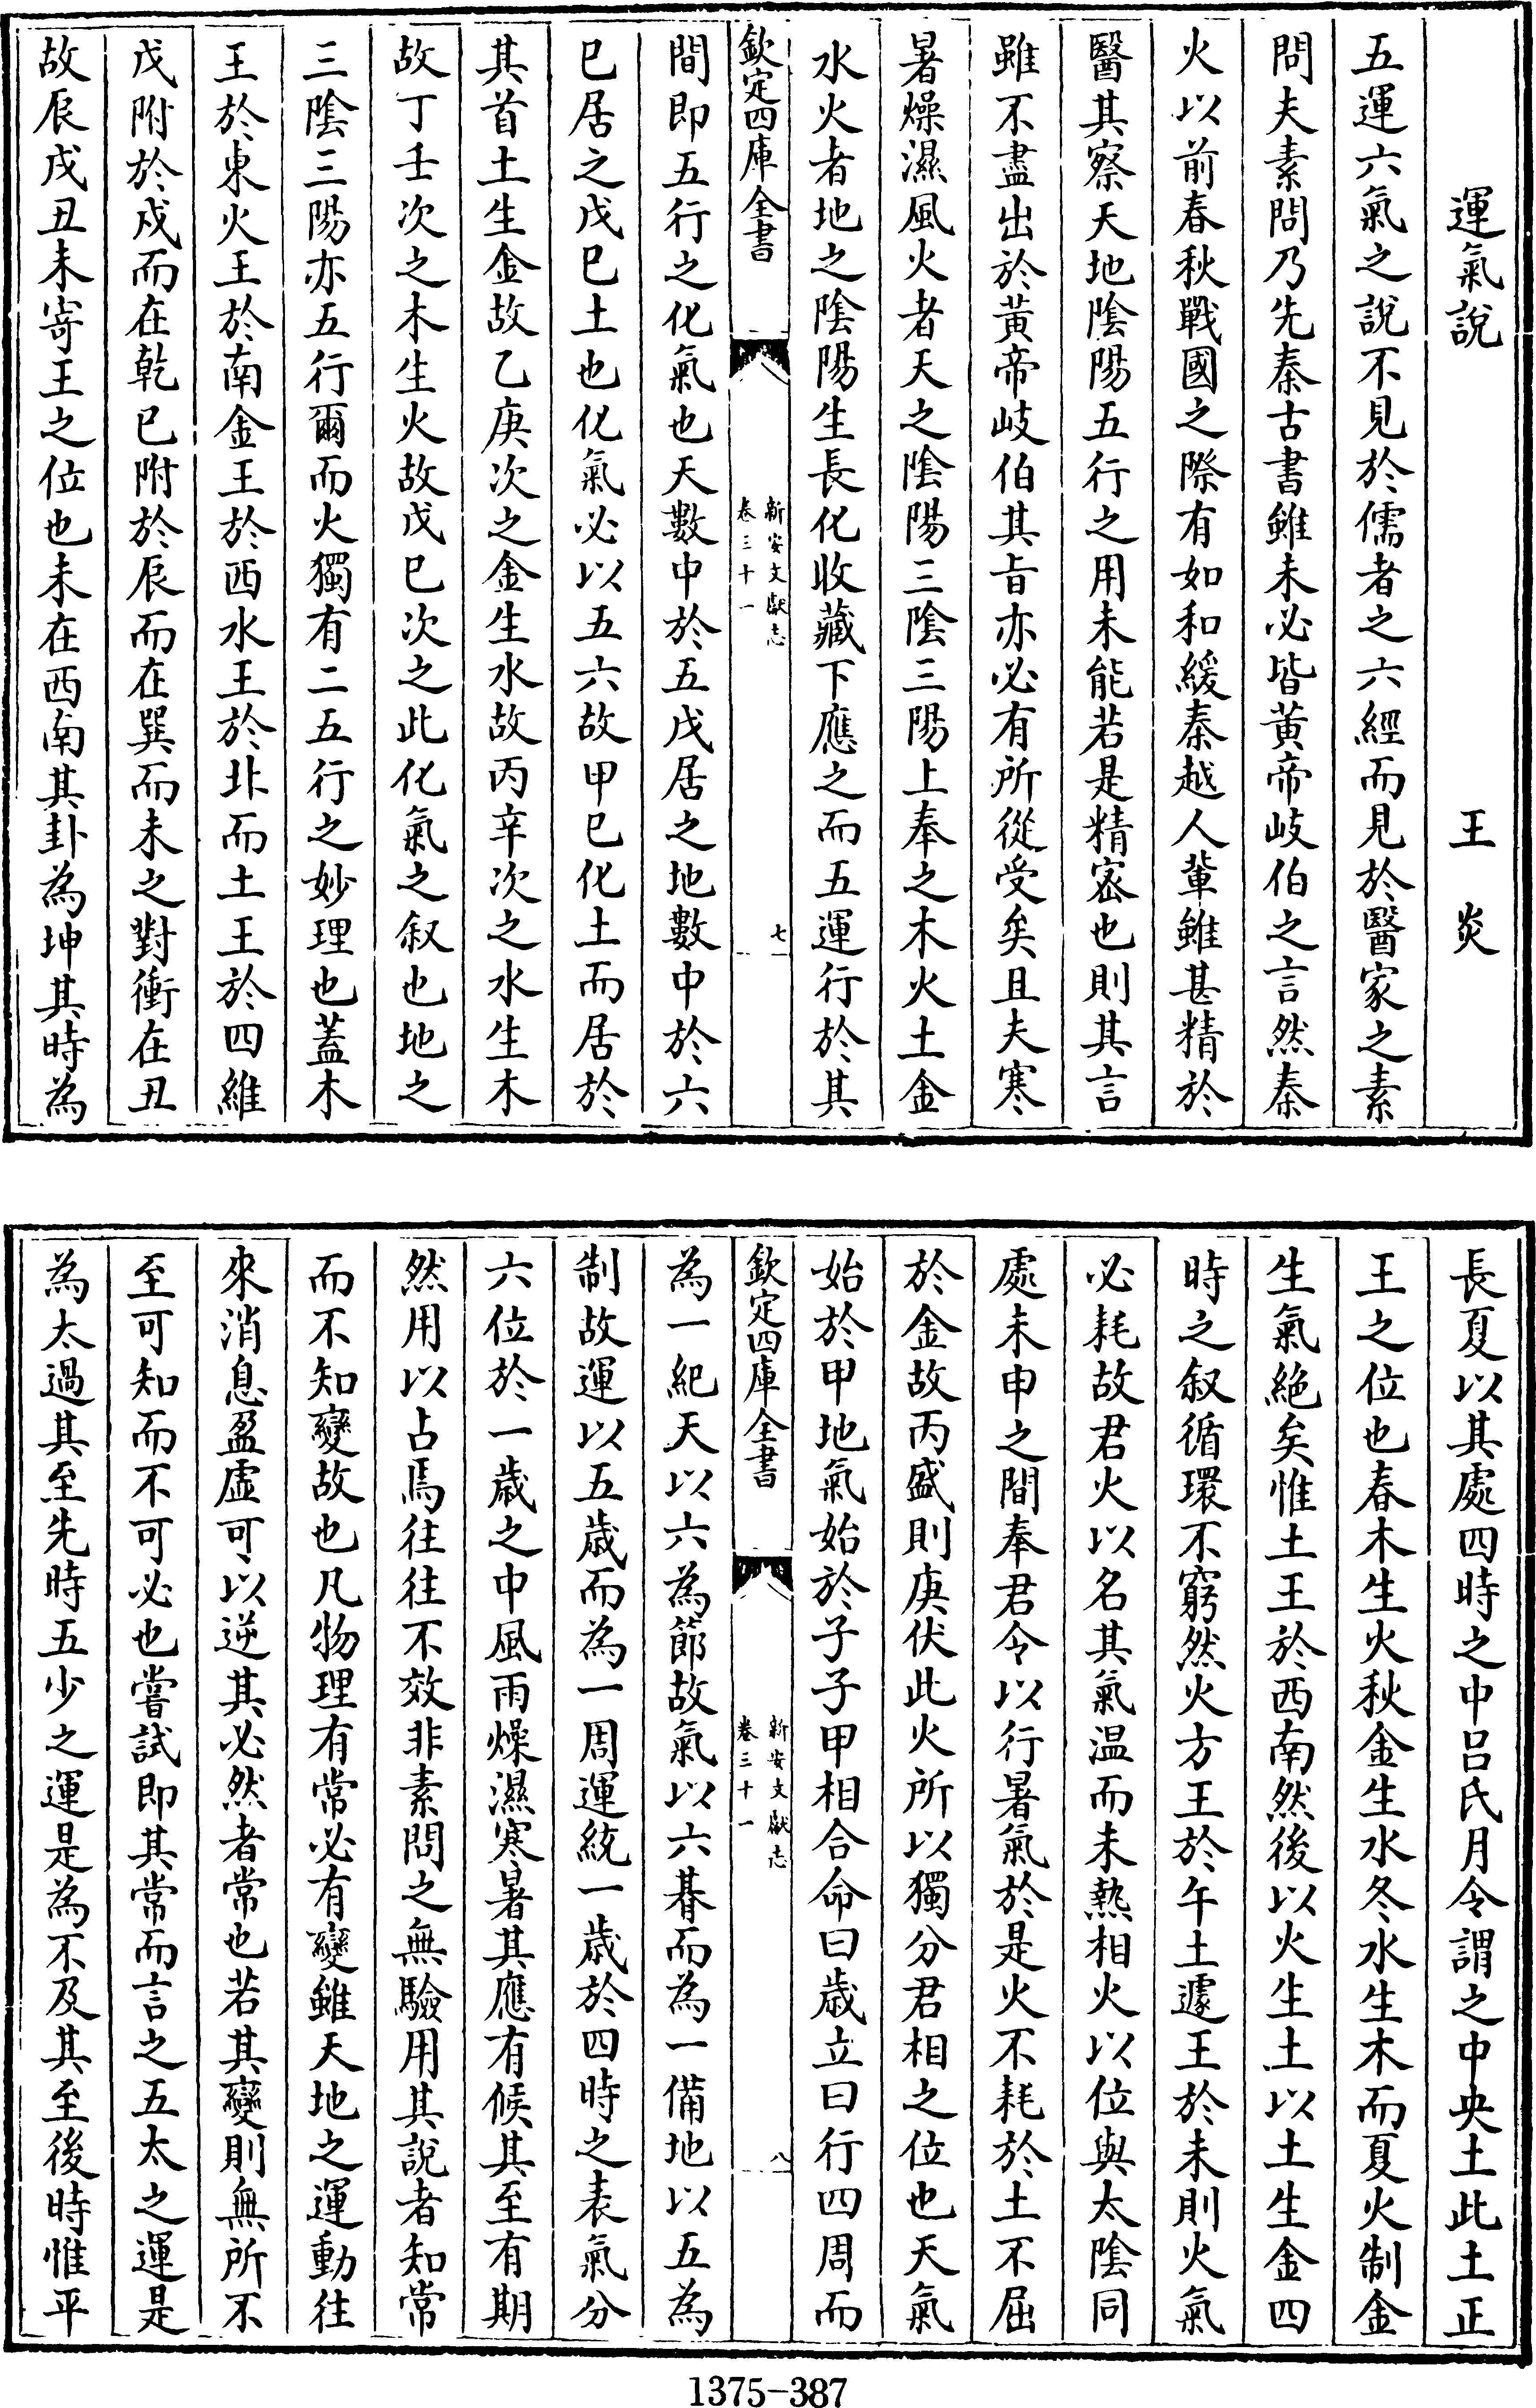 運氣說　王炎
五運六氣之說不見於儒者之六經而見於醫家之素
問夫素問乃先秦古書雖未必皆黃帝岐伯之言然秦
火以前春秋戰國之際有如和緩秦越人輩雖甚精於
醫其察天地陰陽五行之用未能若是精密也則其言
雖不盡出於黃帝岐伯其旨亦必有所從受矣且夫寒
暑燥濕風火者天之陰陽三陰三陽上奉之木火土金
水火者地之陰陽生長化收藏下應之而五運行於其
欽定四庫全書
新安文獻志
卷三十一
七
間即五行之化氣也天數中於五戊居之地數中於六
巳居之戊巳土也化氣必以五六故甲巳化土而居於
其首土生金故乙庚次之金生水故丙辛次之水生木
故丁壬次之木生火故戊巳次之此化氣之叙也地之
三陰三陽亦五行爾而火獨有二五行之妙理也蓋木
王於東火王於南金王於西水王於北而土王於四維
戊附於戍而在乾巳附於辰而在巽而未之對衝在丑
故辰戌丑未寄王之位也未在西南其卦為坤其時為
長夏以其處四時之中吕氏月令謂之中央土此土正
王之位也春木生火秋金生水冬水生木而夏火制金
生氣絶矣惟土王於西南然後以火生土以土生金四
時之叙循環不窮然火方王於午土遽王於未則火氣
必耗故君火以名其氣温而未熱相火以位與太陰同
處未申之間奉君令以行暑氣於是火不耗於土不屈
於金故丙盛則庚伏此火所以獨分君相之位也天氣
始於甲地氣始於子子甲相合命曰歲立曰行四周而
欽定四庫全書
新安文獻志
卷三十一
八
為一紀天以六為節故氣以六朞而為一備地以五為
制故運以五歲而為一周運統一歲於四時之表氣分
六位於一歲之中風雨燥濕寒暑其應有候其至有期
然用以占焉往往不效非素問之無驗用其說者知常
而不知變故也凡物理有常必有變雖天地之運動往
來消息盈虛可以逆其必然者常也若其變則無所不
至可知而不可必也嘗試即其常而言之五太之運是
為太過其至先時五少之運是為不及其至後時惟平
1375-387